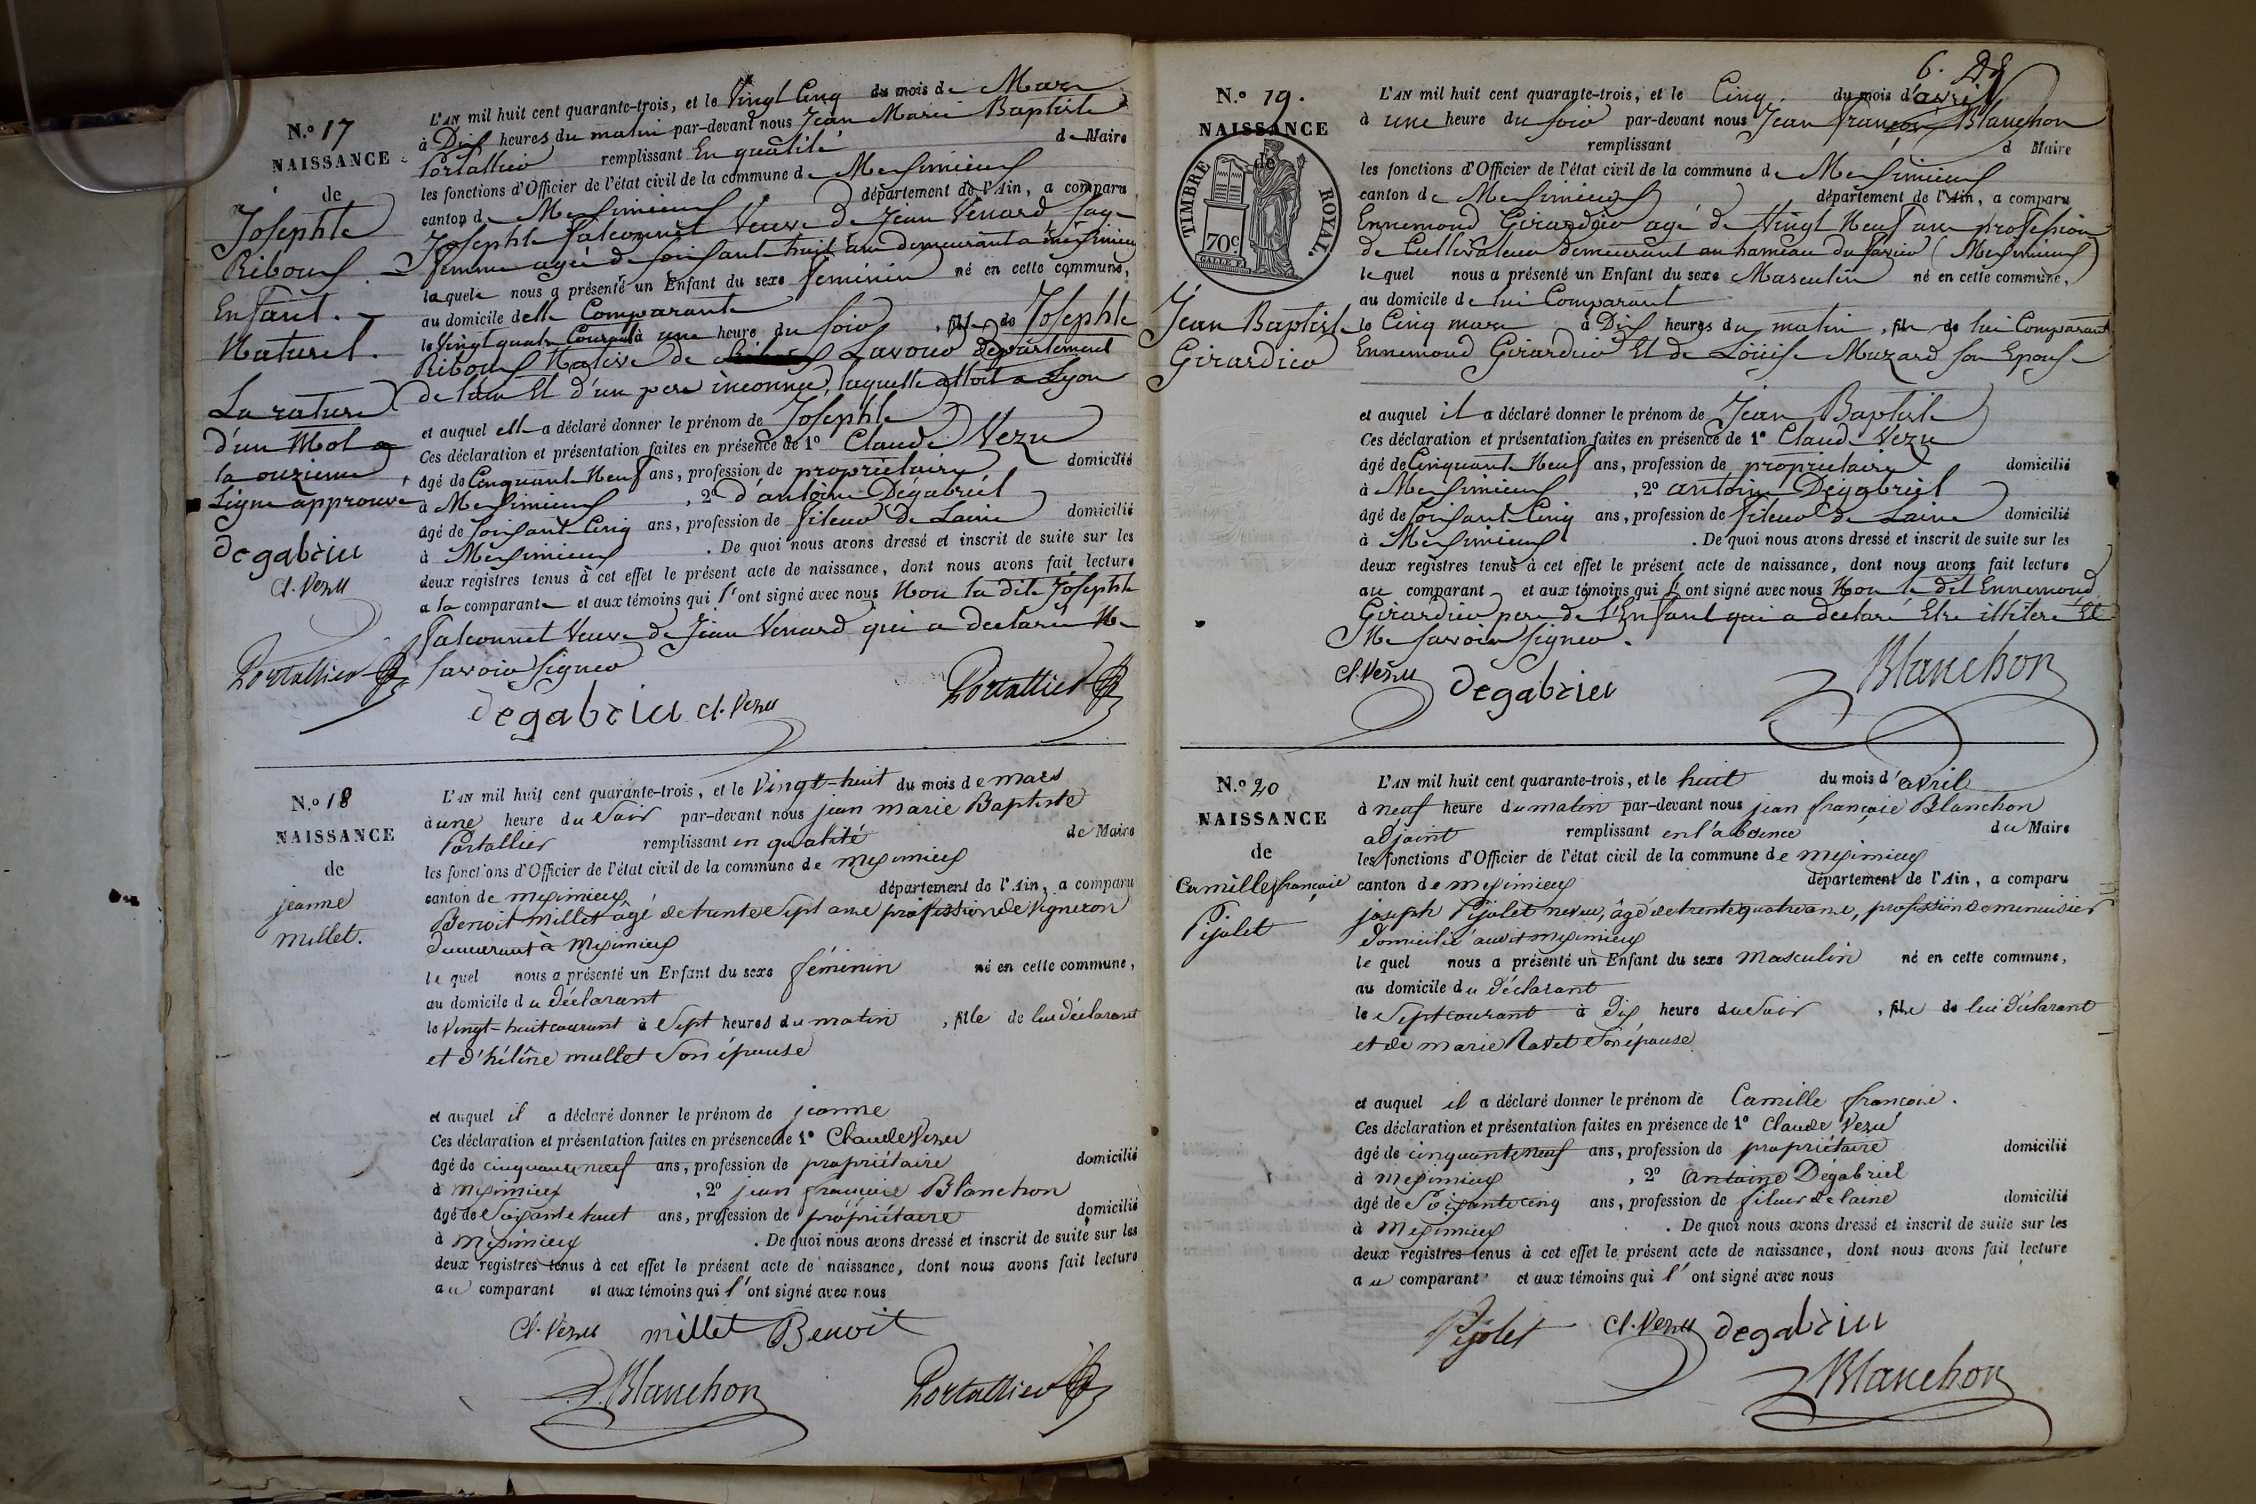 N.º 17
NAISSANCE
de
Josephte
Riboud
Enfant.
Naturel.
La rature
d'un Mot a
la onzieme
Ligne approuvé
degabriel
Cl. Vezu
Portallier
L'AN mil huit cent quarante-trois, et le Vingt Cinq du mois de Mars
à Dix heures du matin par-devant nous Jean Marie Baptiste
Portallier remplissant En qualité de Maire
les fonctions d'Officier de l'état civil de la commune de Meximieux
canton de Meximieux département de l'Ain, a comparu
Josephte falconnet Veuve de Jean Venard, Sage
femme agée de soixante huit ans demeurant a Meximieux
laquele nous a présenté un Enfant du sexe feminin né en cette commune,
au domicile delle Comparante
le Vingt quatre Courant à une heure du soir, fille de Josephte
Riboud Native de Lavour département
de lain Et d'un pere inconnu, laquelle alloit a Lyon
et auquel elle a déclaré donner le prénom de Josephte
Ces déclaration et présentation faites en présence de 1º Claude Vezu
âgé de Cinquante Neuf ans, profession de propriétaire domicilié
à Meximieux, 2º d'antoine Dégabriel
âgé de soixante Cinq ans, profession de fileur De Laine domicilié
à Meximieux. De quoi nous avons dressé et inscrit de suite sur les
deux registres tenus à cet effet le présent acte de naissance, dont nous avons fait lecture
a la comparante et aux témoins qui l'ont signé avec nous Non la dite Josephte
falconnet Veuve de Jean Venard qui a declaré Ne
savoir signer
degabriel Cl. Vezu Portallier
N.º 18
NAISSANCE
de
jeanne
millet.
L'AN mil huit cent quarante-trois, et le Vingt-huit du mois de mars
à une heure du Soir par-devant nous jean marie Baptiste
Portallier remplissant en qualité de Maire
les fonctions d'Officier de l'état civil de la commune de meximieux
canton de meximieux département de l'Ain, a comparu
Benoit Millet âgé de trente Sept ans profession de Vigneron
demeurant à Meximieux
le quel nous a présenté un Enfant du sexe féminin né en cette commune,
au domicile du déclarant
le Vingt-huit courant à Sept heures du matin, fille de lui déclarant
et d'hélêne mullet Son épouse
et auquel il a déclaré donner le prénom de jeanne
Ces déclaration et présentation faites en présence de 1º Claude Vezu
âgé de cinquante neuf ans, profession de propriétaire domicilié
à meximieux, 2º jean françois Blanchon
âgé de Soixante huit ans, profession de propriétaire domicilié
à meximieux. De quoi nous avons dressé et inscrit de suite sur les
deux registres tenus à cet effet le présent acte de naissance, dont nous avons fait lecture
au comparant et aux témoins qui l'ont signé avec nous
Cl. Vezu millet Benoit
Blanchon Portallier
6.
N.º 19.
NAISSANCE
de
TIMBRE ROYAL.
70c
Jean Baptiste
Girardier
L'AN mil huit cent quarante-trois, et le Cinq du mois d'avril
à une heure du soir par-devant nous Jean françois Blanchon
remplissant d Maire
les fonctions d'Officier de l'état civil de la commune de Meximieux
canton de Meximieux département de l'Ain, a comparu
Ennemond Girardier agé de Vingt Neuf ans profession
de Cultivateur demeurant au hameau du (Meximieux)
le quel nous a présenté un Enfant du sexe Masculin né en cette commune,
au domicile de lui Comparant
le Cinq mars à Dix heures du matin, fils de lui Comparant
Ennemond Girardier Et de Loüise Muzard son Epouse
et auquel il a déclaré donner le prénom de Jean Baptiste
Ces déclaration et présentation faites en présence de 1º Claude Vezu
âgé de Cinquante Neuf ans, profession de propriétaire domicilié
à Meximieux, 2º antoine Dégabriel
âgé de soixante Cinq ans, profession de fileur de Laine domicilié
à Meximieux. De quoi nous avons dressé et inscrit de suite sur les
deux registres tenus à cet effet le présent acte de naissance, dont nous avons fait lecture
au comparant et aux témoins qui l'ont signé avec nous Non le dit Ennemond
Girardier pere de l'Enfant qui a declaré Etre illitéré Et
Ne savoir signer.
Cl. Vezu degabriel Blanchon
N.º 20
NAISSANCE
de
Camille françois
Pijolet
L'AN mil huit cent quarante-trois, et le huit du mois d'avril
à neuf heure du matin par-devant nous jean françois Blanchon
adjoint remplissant en l'absence du Maire
les fonctions d'Officier de l'état civil de la commune de meximieux
canton de meximieux département de l'Ain, a comparu
joseph Pijolet neveu, âgé de trente quatre ans, profession de menuisier
domicilié audit meximieux
le quel nous a présenté un Enfant du sexe Masculin né en cette commune,
au domicile du déclarant
le Sept courant à dix heure du Soir, fils de lui déclarant
et de marie Ravet Son épouse
et auquel il a déclaré donner le prénom de Camille françois.
Ces déclaration et présentation faites en présence de 1º Claude Vezu
âgé de cinquante neuf ans, profession de propriétaire domicilié
à meximieux, 2º Antoine Dégabriel
âgé de Soixante cinq ans, profession de fileur de laine domicilié
à meximieux. De quoi nous avons dressé et inscrit de suite sur les
deux registres tenus à cet effet le présent acte de naissance, dont nous avons fait lecture
au comparant et aux témoins qui l'ont signé avec nous
Pijolet Cl. Vezu degabriel
Blanchon